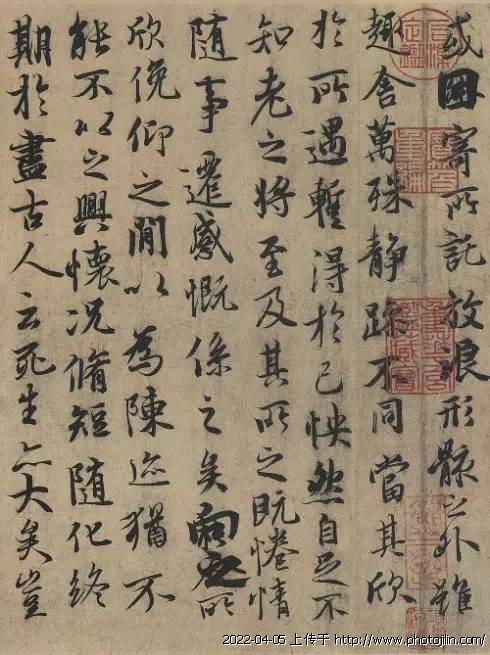 或因寄所託放浪形骸之外雖
趣舍萬殊静躁不同當其欣
於所遇蹔得於己怏然自足不
知老之將至及其所之既惓情
随事遷感慨係之矣向之所
欣俛仰之閒以為陳迹猶不
能不以之興懷况脩短随化終
期於盡古人云死生亦大矣豈
2022-04-05 上传于 http://www.photojilin.com/